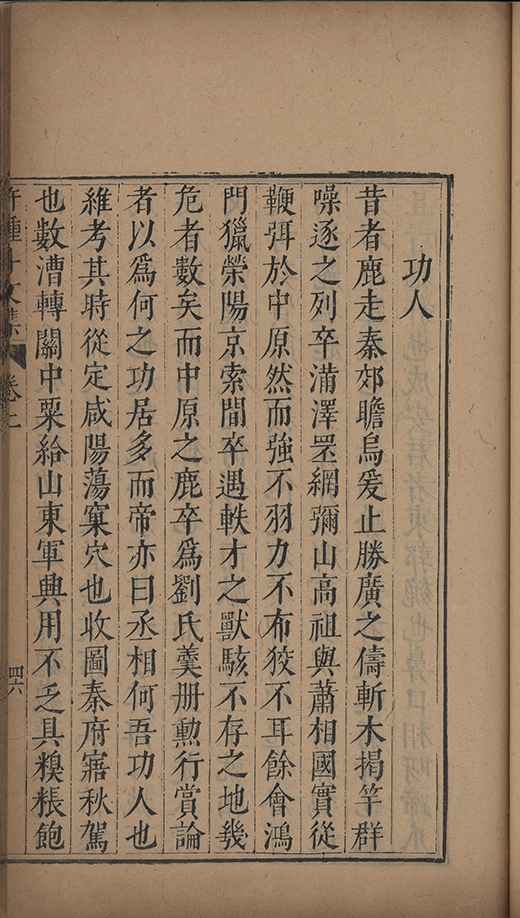 功人
昔者鹿走秦郊瞻烏爰止勝廣之儔斬木揭竿群
噪逐之列卒滿澤罜網彌山高祖與蕭相國實從
鞭弭於中原然而強不羽力不布狡不耳餘會鴻
門獵榮陽京索間卒遇軼才之獸駭不存之地幾
危者數矣而中原之鹿卒為劉氏羹冊勲行賞論
者以為何之功居多而帝亦曰丞相何吾功人也
維考其時從定咸陽蕩窠穴也收圖秦府寤秋駕
也數漕轉關中粟給山東軍興用不乏具糗粻飽
卷二
四六